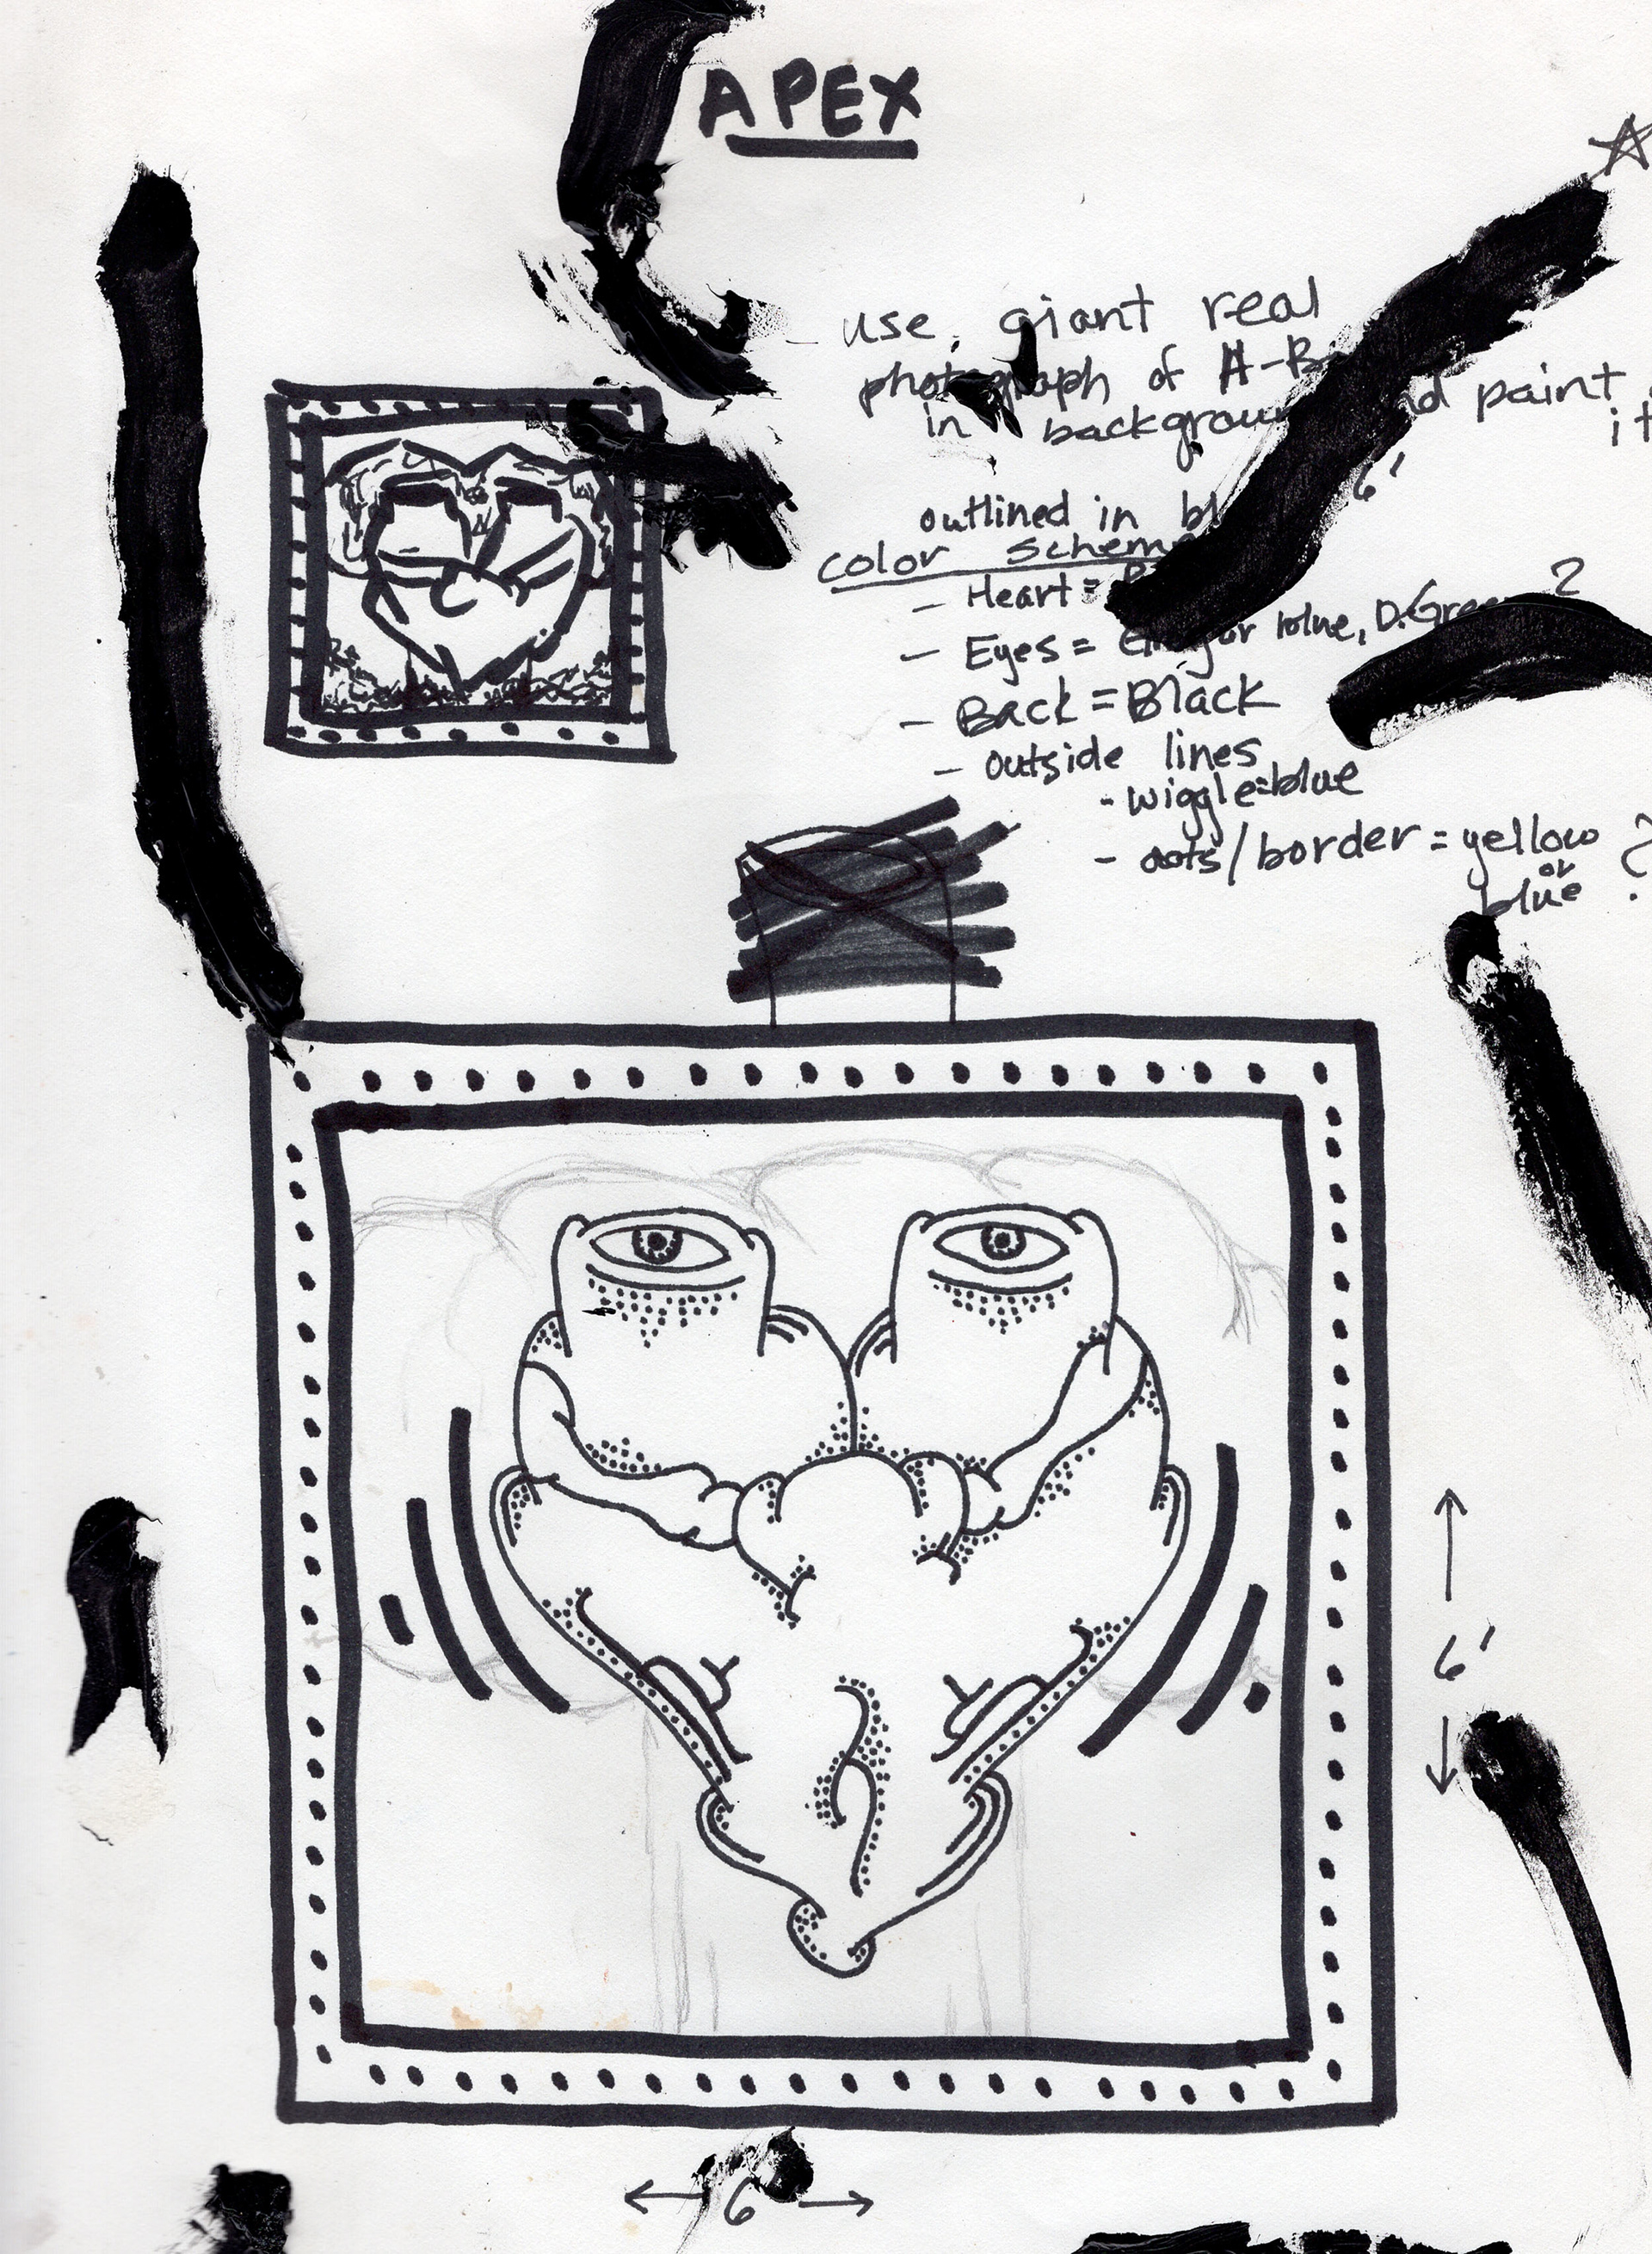 APEX
use giant real
photograph of A-B
in background paint
it
6'
outlined in
color scheme
- Heart =
- Eyes = or blue, D.Green ?
- Back = Black
- outside lines
- wiggle=blue
- dots/border = yellow ?
or
blue
6'
6'